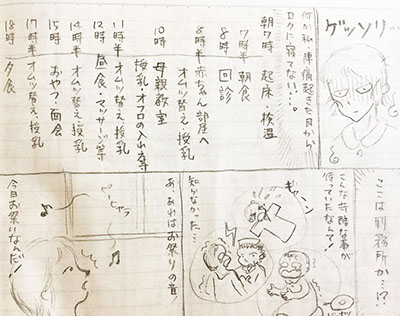 ゲッソリ…
何か私、陣痛起きた日から
ロクに寝てない…。
朝7時 起床・検温
7時半 朝食
8時 回診
8時半 赤ちゃん部屋へ
オムツ替え、授乳
10時 母親教室
授乳、オフロの入れ専
11時半 オムツ替え、授乳
12時 昼食、マッサージ等
14時半 オムツ替え、授乳
15時 おやつ・面会
17時半 オムツ替え、授乳
18時 夕食
ここは刑務所か…!?
こんな苛酷な事が
待っていたなんて!
ギャーン
知らなかった…
あ、あれはお祭りの音
ピーヒャラ
今日お祭りなんだ!